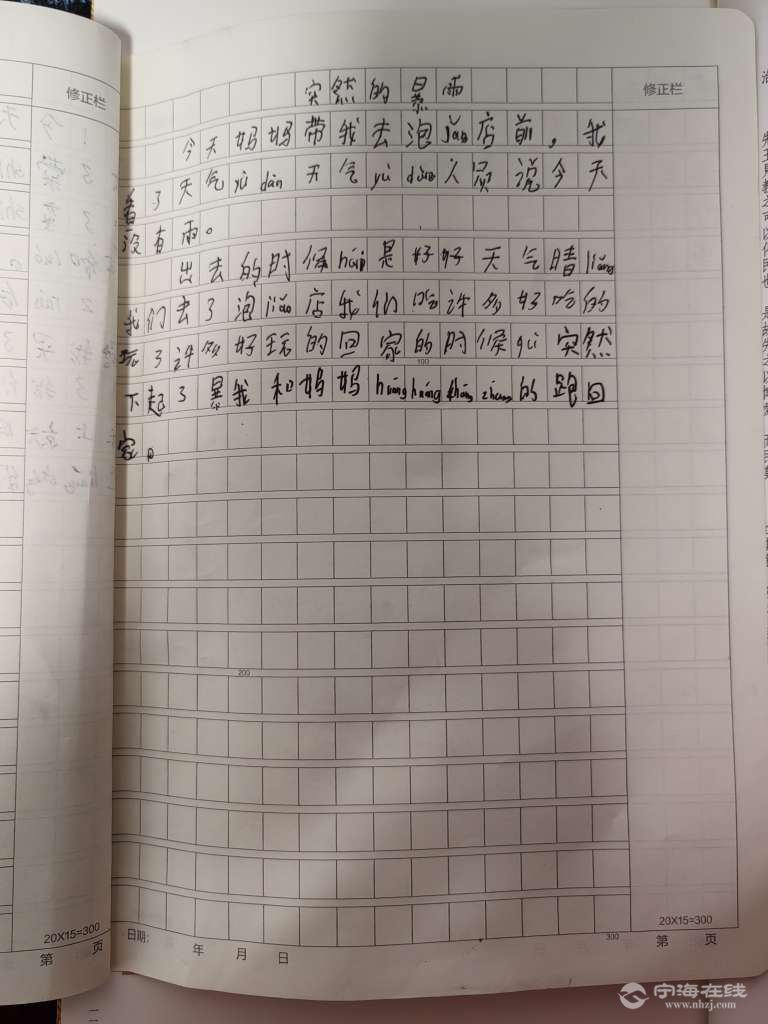 修正栏
修正栏
突然的暴雨
今天妈妈带我去泡jiǎo店前，我
看了天气yù dàn天气yù dàn人员说今天
没有雨。
出去的时候hái是好好天气晴liǎng
我们去了泡jiǎo店我们吃许多好吃的
玩了许多好玩的回家的时候gù突然
下起了暴我和妈妈huāng huāng zhāng zhāng的跑回
家。
100
200
300
20X15=300
第 页
日期： 年 月 日
20X15=300
第 页
宁海在线
www.nhzj.com